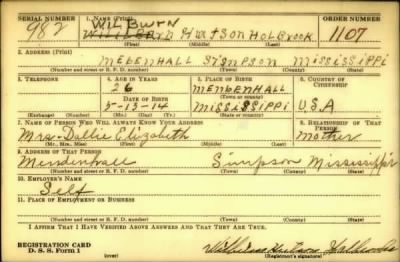 SERIAL NUMBER
1. NAME (Print)
ORDER NUMBER
WILBURN
982
HOLBROOK
1107
(First) (Middle) (Last)
2. ADDRESS (Print)
MEDENHALL SIMPSON MISSISSIPPI
(Number and street or R. F. D. number) (Town) (County) (State)
3. TELEPHONE
4. AGE IN YEARS
5. PLACE OF BIRTH
6. COUNTRY OF CITIZENSHIP
26
MENDENHALL
DATE OF BIRTH
(Town or county)
5-13-14
MISSISSIPPI
U.S.A
(Exchange) (Number) (Mo.) (Day) (Yr.) (State or country)
7. NAME OF PERSON WHO WILL ALWAYS KNOW YOUR ADDRESS
8. RELATIONSHIP OF THAT PERSON
Mrs. Dallie Elizabeth
Mother
(Mr., Mrs., Miss) (First) (Middle) (Last)
9. ADDRESS OF THAT PERSON
Mendenhall Simpson Mississippi
(Number and street or R. F. D. number) (Town) (County) (State)
10. EMPLOYER'S NAME
Self
11. PLACE OF EMPLOYMENT OR BUSINESS
(Number and street or R. F. D. number) (Town) (County) (State)
I AFFIRM THAT I HAVE VERIFIED ABOVE ANSWERS AND THAT THEY ARE TRUE.
REGISTRATION CARD
D. S. S. Form 1
(over)
(Registrant's signature)